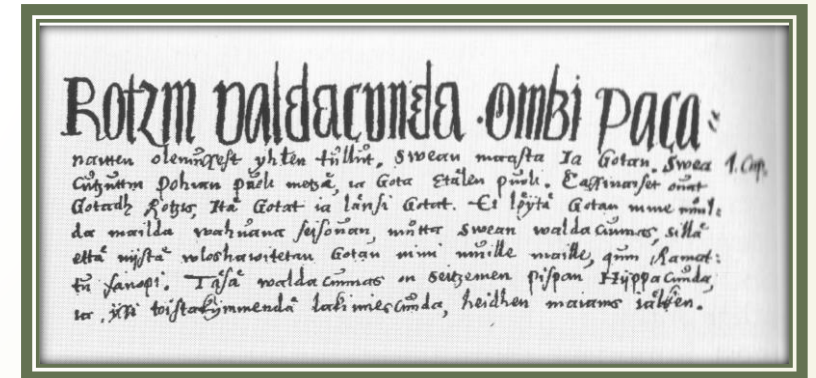 Rotzin valdacunda ombi paca:
olemuxest yhten tullut, Swean maasta Ia Gotan. Swea 1. Cap.
Pohian puoli metzä, ia Gota Etälen puoli. ouat
Gotadh Rotzis, Itä Gotat ia länsi Gotat. Ei löytä Gotan nime muul:
da mailda wahwana seisouan, mutta Swean walda Cunnas, sillä
että nijstä wloshawitetan Gotan nimi muille maille, quin Ramat:
tu sanopi. Täsä walda cunnas on seitzemen pispan Hijppacunda,
ia yxi toistakymmendä lakimiescunda, heidhen maiams iälken.